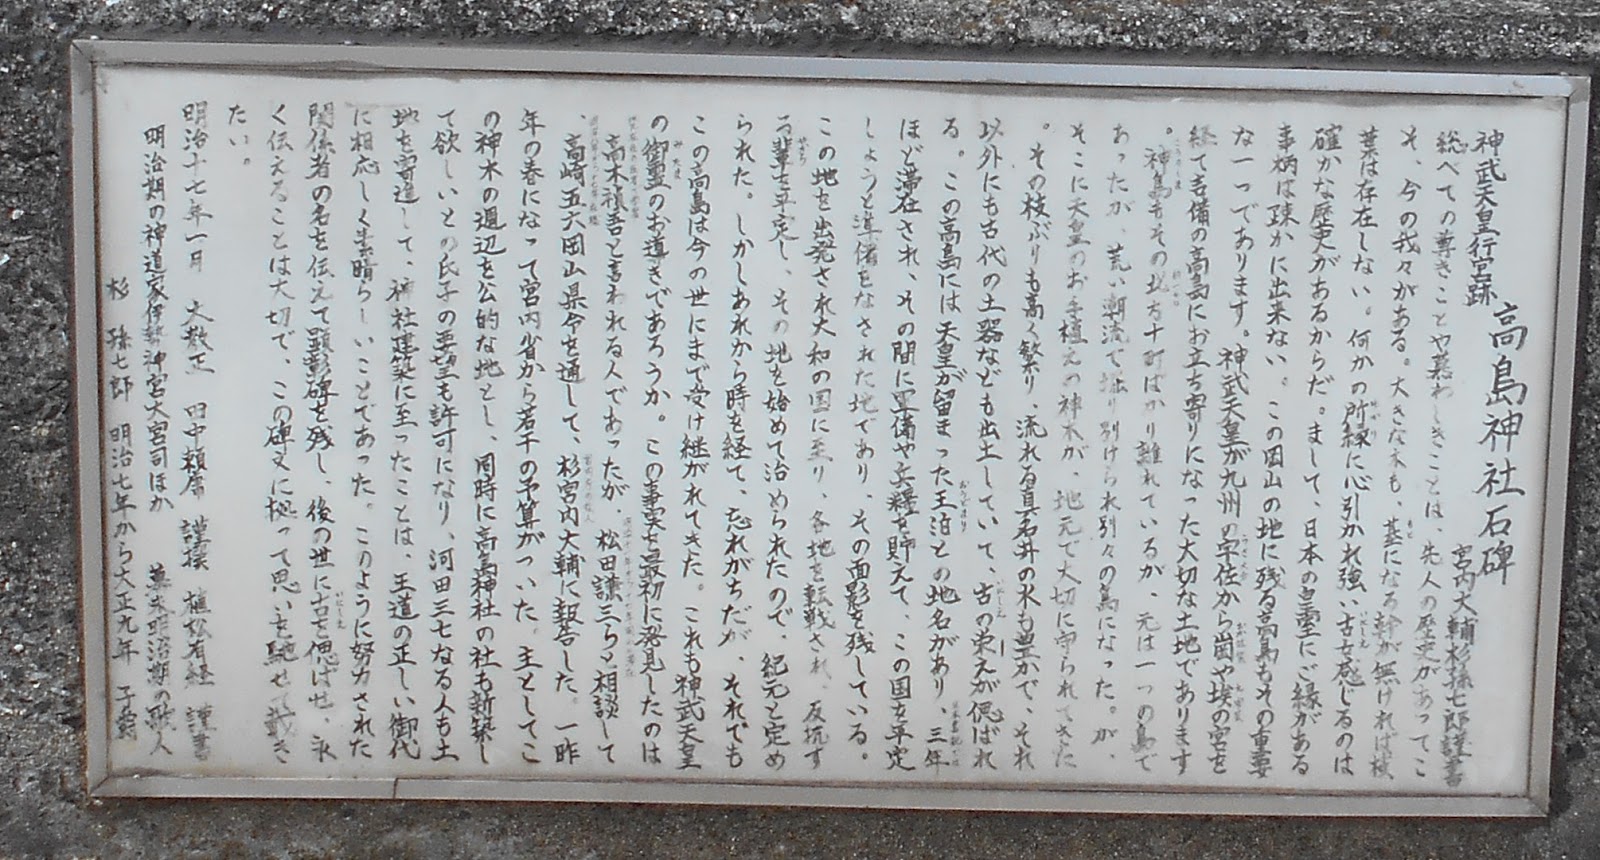 神武天皇行宮跡
高島神社石碑
宮内大輔杉孫七郎謹書
総べての尊きことや慕わしきことは、先人の歴史があってこ
そ、今の我々がある。大きな木も、基になる幹が無ければ枝
葉は存在しない。何かの所縁に心引かれ強い古を感じるのは
確かな歴史があるからだ。まして、日本の皇室にご縁がある
事柄は疎かに出来ない。この岡山の地に残る高島もその重要
な一つであります。神武天皇が九州の宇佐から崗や埃の宮を
経て吉備の高島にお立ち寄りになった大切な土地であります
。神島もその北方十町ばかり離れているが、元は一つの島で
あったが、荒い潮流で掘り別けられ別々の島になった。が、
そこに天皇のお手植えの神木が、地元で大切に守られてきた
。その枝ぶりも高く繁り、流れる真名井の水も豊かで、それ
以外にも古代の土器なども出土していて、古の栄えが偲ばれ
る。この高島には天皇が留まった王泊との地名があり、三年
ほど滞在され、その間に軍備や兵糧を貯えて、この国を平定
しようと準備をなされた地であり、その面影を残している。
この地を出発され大和の国に至り、各地を転戦され、反抗す
る輩を平定し、その地を始めて治められたので、紀元と定め
られた。しかしあれから時を経て、忘れがちだが、それでも
この高島は今の世にまで受け継がれてきた。これも神武天皇
の御霊のお導きであろうか。この事実を最初に発見したのは
高木禎吾と言われる人であったが、松田謙三らと相談して
、高崎五六岡山県令を通して、杉宮内大輔に報告した。一昨
年の春になって宮内省から若干の予算がついた。主としてこ
の神木の週辺を公的な地とし、同時に高島神社の社も新築し
て欲しいとの氏子の要望も許可になり、河田三七なる人も土
地を寄進して、神社建築に至ったことは、王道の正しい御代
に相応しく素晴らしいことであった。このように努力された
関係者の名を伝えて顕彰碑を残し、後の世に古を偲ばせ、永
く伝えることは大切で、この碑文に拠って思いを馳せて戴き
たい。
明治十七年一月　大教正　田中頼庸　謹撰　植松有経　謹書
明治期の神道家伊勢神宮大宮司ほか　幕末明治期の歌人
杉　孫七郎　明治七年から大正九年　子爵